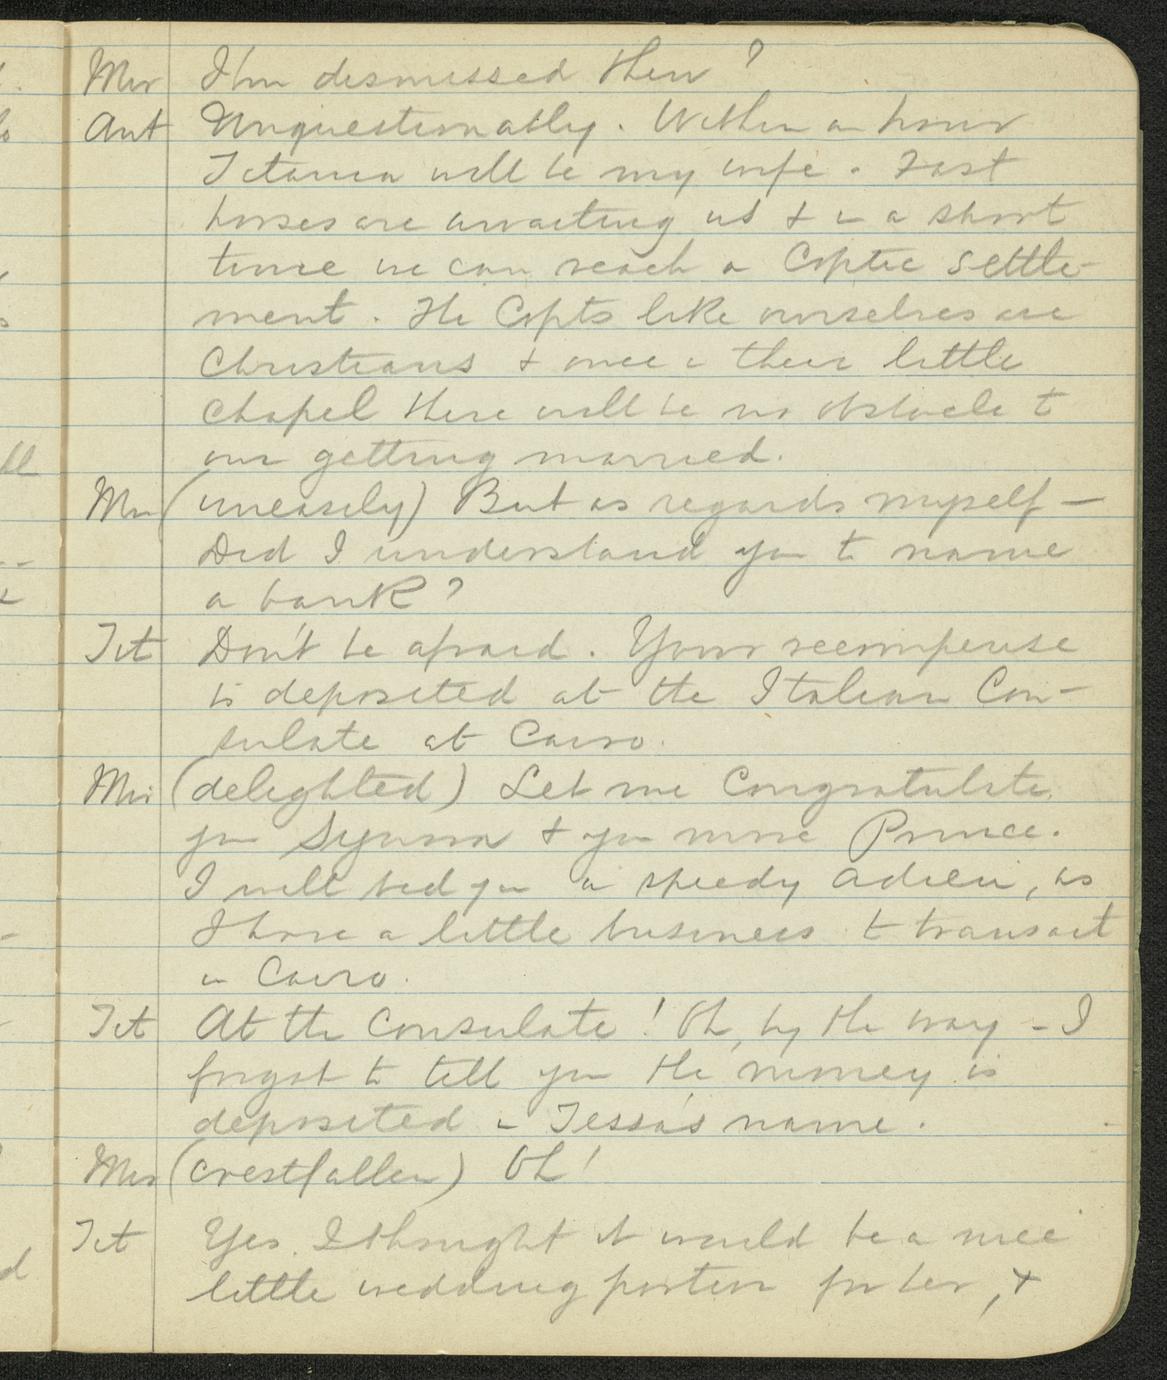 Mir I'm dismissed then ?
Ant Unquestionably. Within an hour
Titania will be my wife. Fast
horses are awaiting us & in a short
time we can reach a Coptic settle-
ment. The Copts like ourselves are
Christians & once in their little
chapel there will be no obstacle to
our getting married.
Mir (uneasily) But as regards myself —
Did I understand you to name
a bank?
Tit Don't be afraid. Your recompense
is deposited at the Italian Con-
sulate at Cairo.
Mir (delighted) Let me Congratulate
you Signora & you more Prince.
I will bid you a speedy adieu, as
I have a little business to transact
in Cairo.
Tit At the Consulate! Oh, by the way - I
forgot to tell you the money is
deposited in Tessa's name.
Mir (crestfallen) Oh!
Tit Yes. I thought it would be a nice
little wedding portion for her, &